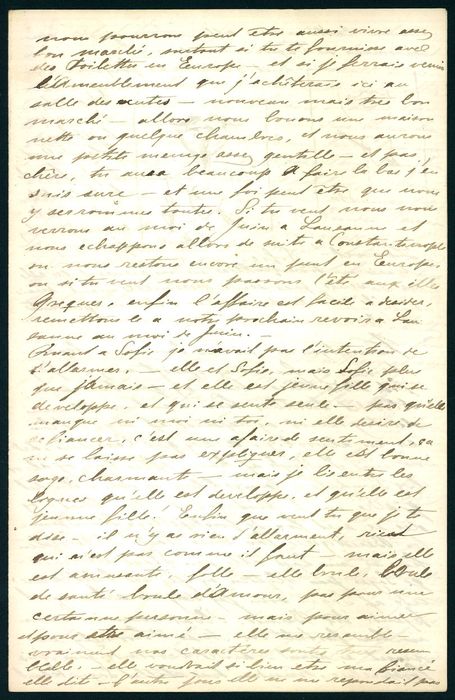 nous pourrons peut etre aussi vivre assez
bon marché, surtout si tu te fournies avec
des toilettes en Europe – et si je ferrais venir
l'Ameublement que j'achèterais ici au
salle des ventes – nouveau mais tres bon
marché – allors nous louons une maison
nette ou quelque chambres, et nous aurons
une petite menage assez gentille – et pas
chère, tu auras beaucoup a faire la bas j'en
suis sure – et une foi peut etre que nous
y serons toutes. Si tu veut nous nous
verrons au moi de Juin a Lausanne et
nous echappons allors de suite a Constantinople
ou nous restons encore un peut en Europe,
ou si tu veut nous passons l'été aux illes
Grecques, enfin l'affaire est facile a decider,
remettons le a notre prochain revoir a Lau
sanne au moi de Juin. –
Quant a Sofie je n'avait pas l'intention de
t'allarmer, – elle est Sofie, mais Sofie plus
que jamais – et elle est jeune fille qui se
developpe, et qui se sente seule – pas qu'elle
manque ni moi ni toi, ni elle desire de
se fiancer, c'est une afaire de sentiment, ça
ne se laisse pas expliquer, elle est bonne
sage, charmante – mais je lis entre les
lignes qu'elle est developpé, et qu'elle est
jeune fille! Enfin que veut tu que je te
dise – il n'y a rien d'allarment, rien
qui n'est pas comme il faut – mais elle
est amusante, folle – elle brule, brule
de santé brule d'Amour, pas pour une
certaine personne – mais pour aimer
et pour etre aimé – elle me resemble –
vraiment nos caractères sont tres resem
blable – elle voudrait si bien etre ma fiancé
elle dit – l'autre fois elle ne me repondait pas